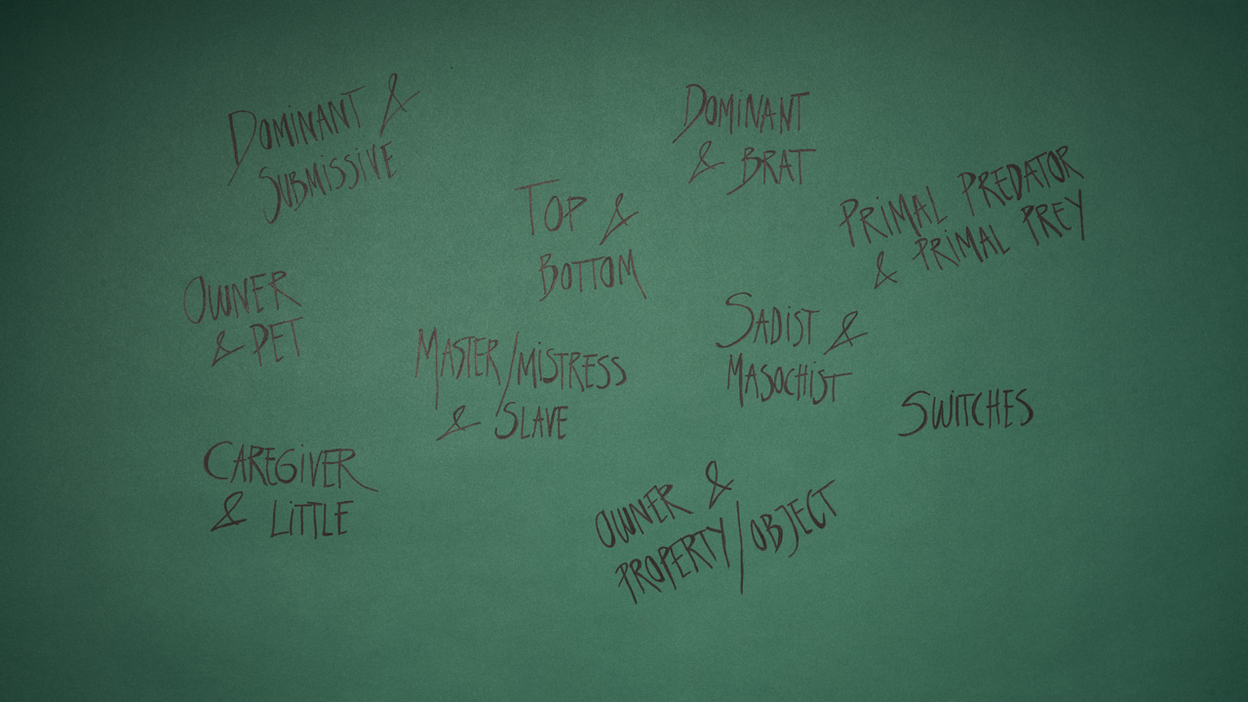 DOMINANT &
SUBMISSIVE
DOMINANT
& BRAT
TOP &
BOTTOM
PRIMAL PREDATOR
& PRIMAL PREY
OWNER
& PET
MASTER/MISTRESS
& SLAVE
SADIST &
MASOCHIST
SWITCHES
CAREGIVER
& LITTLE
OWNER &
PROPERTY/OBJECT